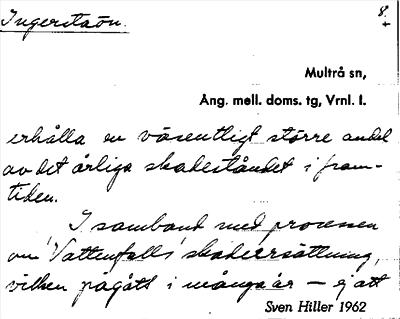 Ingerstaån.
8.
Multrå sn,
Ång. mell. doms. tg, Vrnl. l.
erhålla en väsentligt större andel
av det årliga skadeståndet i fram-
tiden.
I samband med processen
om Vattenfalls' skadeersättning,
vilken pågått i många år – ej att
Sven Hiller 1962